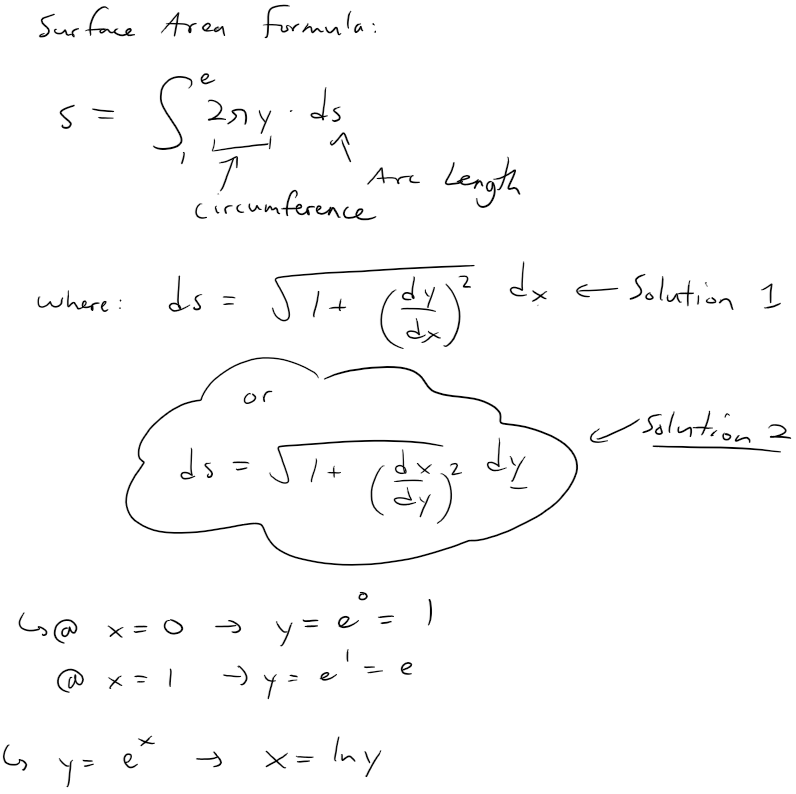 Surface Area Formula:
S = ∫₁ᵉ 2πy · ds
circumference
Arc Length
where: ds = √(1 + (dy/dx)²) dx ← Solution 1
or
ds = √(1 + (dx/dy)²) dy ↙ Solution 2
↳ @ x = 0 → y = e⁰ = 1
@ x = 1 → y = e¹ = e
↳ y = eˣ → x = ln y